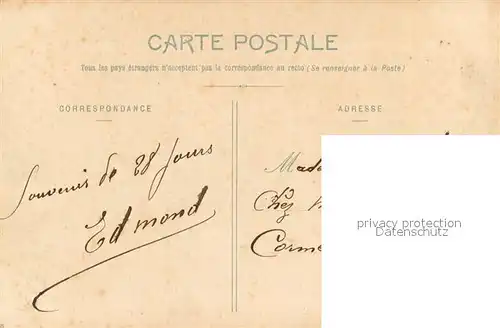 CARTE POSTALE
Tous les pays étrangers n'acceptent pas la correspondance au recto (Se renseigner à la Poste)
CORRESPONDANCE
Souvenir de 28 jours
Edmond
ADRESSE
Mada
Chez
Corme
privacy protection
Datenschutz